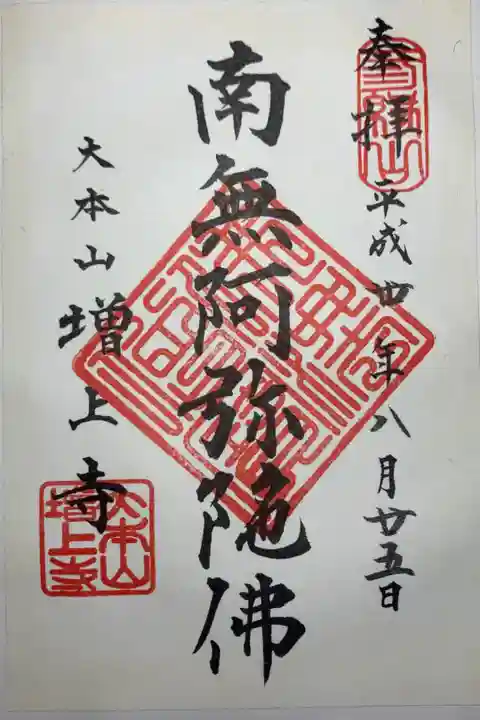 奉拝
平成四年八月廿五日
南無阿弥陀佛
大本山増上寺
大本山
増上寺